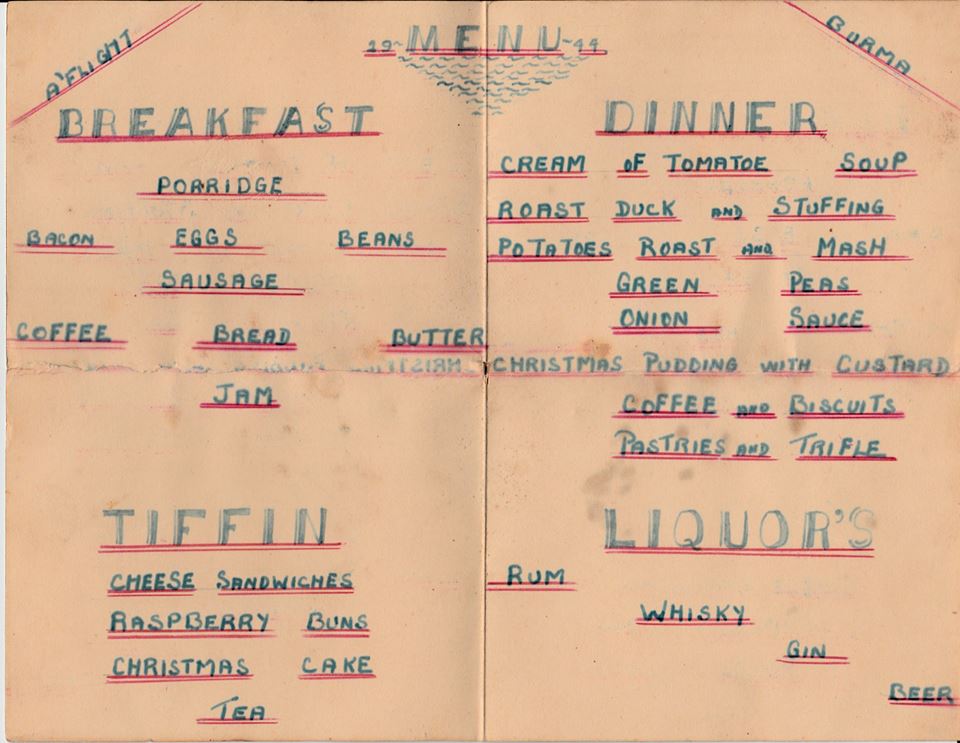 A'FLIGHT
19~MENU~44
BURMA
BREAKFAST
PORRIDGE
BACON EGGS BEANS
SAUSAGE
COFFEE BREAD BUTTER
JAM
TIFFIN
CHEESE SANDWICHES
RASPBERRY BUNS
CHRISTMAS CAKE
TEA
DINNER
CREAM OF TOMATOE SOUP
ROAST DUCK AND STUFFING
POTATOES ROAST AND MASH
GREEN PEAS
ONION SAUCE
CHRISTMAS PUDDING WITH CUSTARD
COFFEE AND BISCUITS
PASTRIES AND TRIFLE
LIQUOR'S
RUM
WHISKY
GIN
BEER